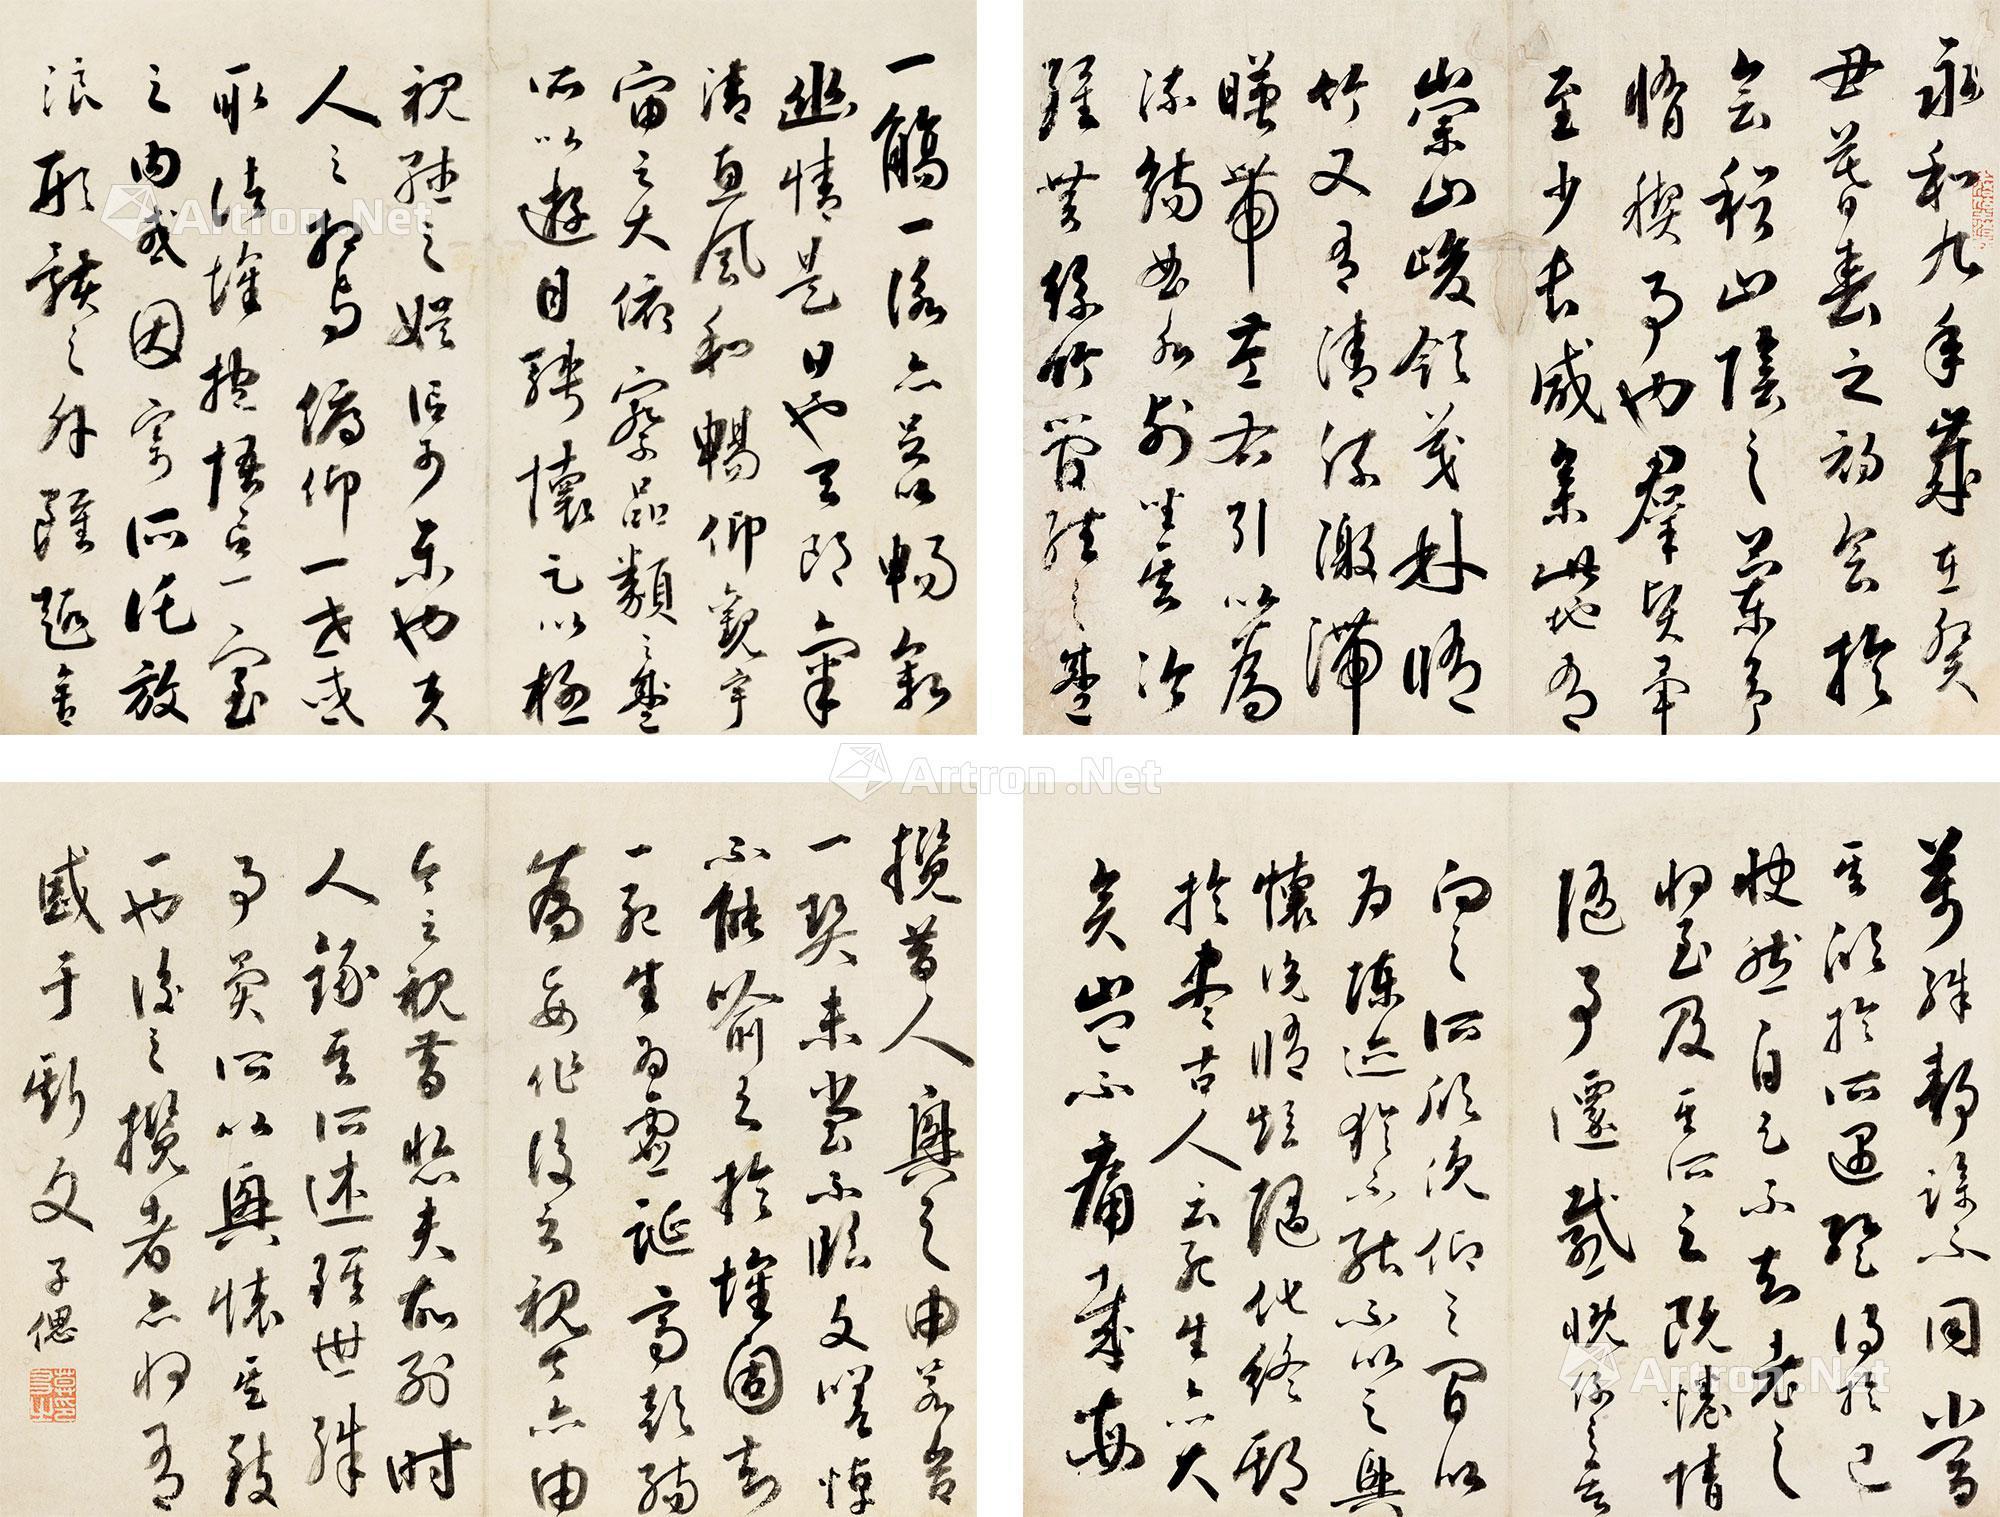 永和九年歲在癸
丑暮春之初會於
會稽山陰之蘭亭
脩稧事也群賢畢
至少長咸集此地有
崇山峻領茂林脩
竹又有清流激湍
暎帶左右引以為
流觴曲水列坐其次
雖無絲竹管絃之盛
一觴一詠亦足以暢敘
幽情是日也天朗氣
清惠風和暢仰觀宇
宙之大俯察品類之盛
所以遊目騁懷足以極
視聽之娛信可樂也夫
人之相與俯仰一世或
取諸懷抱悟言一室
之內或因寄所託放
浪形骸之外雖趣舍
萬殊靜躁不同當
其欣於所遇蹔得於己
快然自足不知老之
將至及其所之既惓情
隨事遷感慨係之矣
向之所欣俛仰之間以
為陳迹猶不能不以之興
懷況脩短隨化終期
於盡古人云死生亦大
矣豈不痛哉每
攬昔人興之由若合
一契未嘗不臨文嗟悼
不能喻之於懷固知
一死生為虛誕齊彭殤
為妄作後之視今亦由
今之視昔悲夫故列時
人錄其所述雖世殊
事異所以興懷其致
一也後之攬者亦將有
感于斯文 子偲
Artron.Net
Artron.Net
Artron.Net